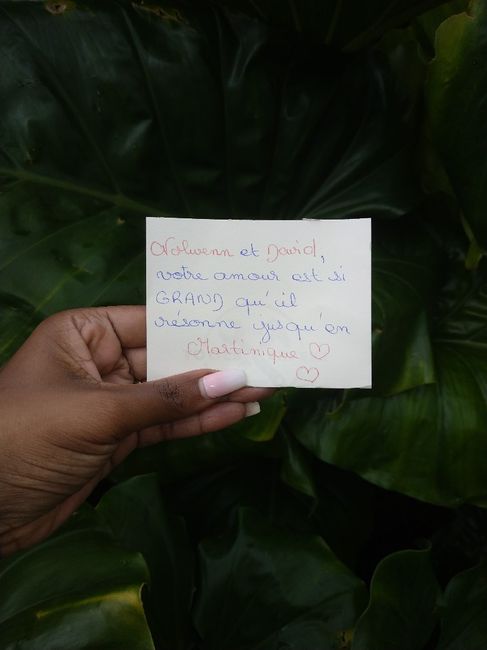 Nolwenn et David,
votre amour est si
GRAND qu'il
résonne jusqu'en
Martinique ♡
♡